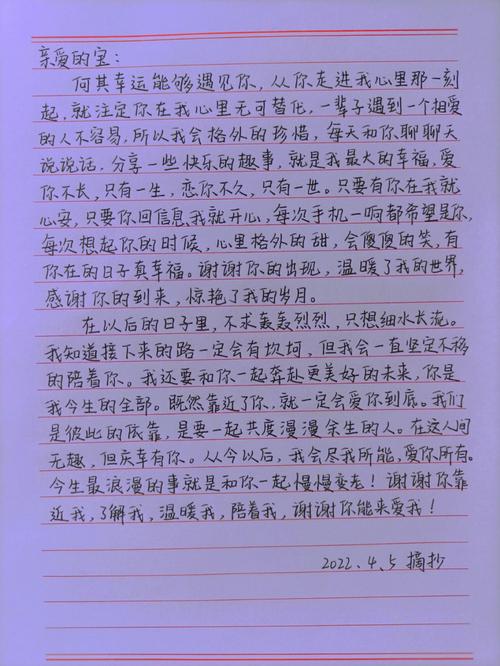 亲爱的宝：
何其幸运能够遇见你，从你走进我心里那一刻
起，就注定你在我心里无可替化，一辈子遇到一个相爱
的人不容易，所以我会格外的珍惜，每天和你聊聊天
说说话，分享一些快乐的趣事，就是我最大的幸福，爱
你不长，只有一生，恋你不久，只有一世。只要有你在我就
心安，只要你回信息我就开心，每次手机一响都希望是你，
每次想起你的时候，心里格外的甜，会傻傻的笑，有
你在的日子真幸福。谢谢你的出现，温暖了我的世界，
感谢你的到来，惊艳了我的岁月。
在以后的日子里，不求轰轰烈烈，只想细水长流。
我知道接下来的路一定会有坎坷，但我会一直坚定不移
的陪着你。我还要和你一起奔赴更美好的未来，你是
我今生的全部。既然靠近了你，就一定会爱你到底。我们
是彼此的依靠，是要一起共度漫漫余生的人。在这人间
无趣，但庆幸有你。从今以后，我会尽我所能，爱你所有。
今生最浪漫的事就是和你一起慢慢变老！谢谢你靠
近我，了解我，温暖我，陪着我，谢谢你能来爱我！
2022.4.5 摘抄